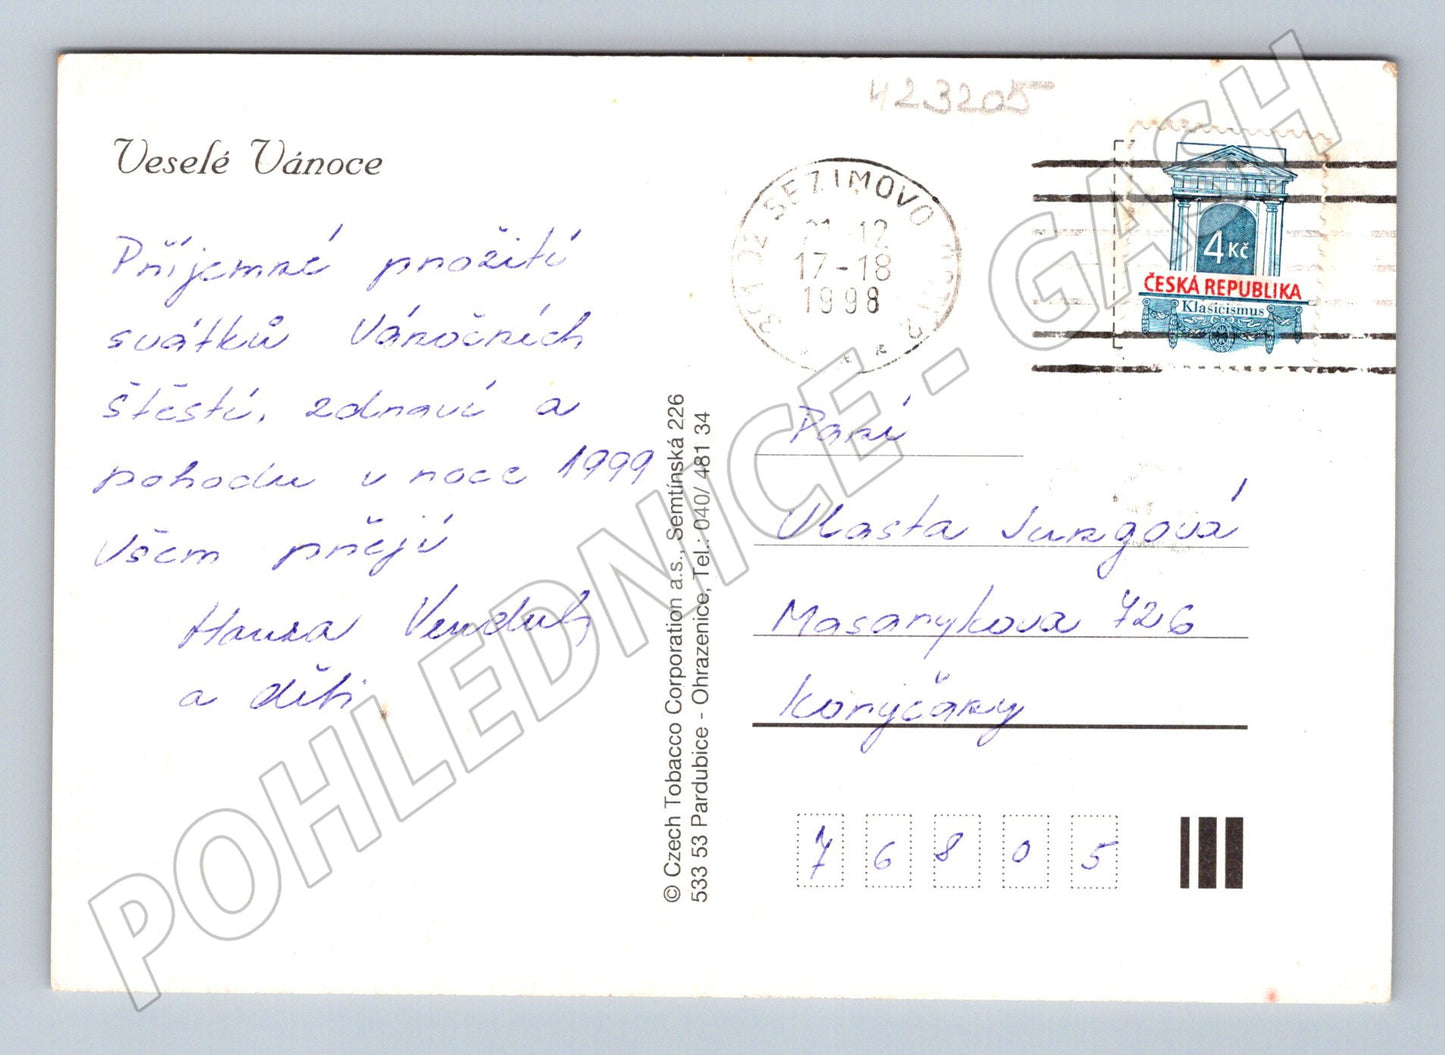 423205
Veselé Vánoce
Příjemné prožití
svátků Vánočních
štěstí, zdraví a
pohodu v roce 1999
Všem přejí
Hanza Vendula
a děti
© Czech Tobacco Corporation a.s., Semtínská 226
533 53 Pardubice - Ohrazenice, Tel.: 040/481 34
SEZIMOVO
21-12
17-18
1998
4 Kč
ČESKÁ REPUBLIKA
Klasicismus
Paní
Vlasta Jurgová
Masarykova 726
Koryčany
76805
POHLEDNICE - GASH